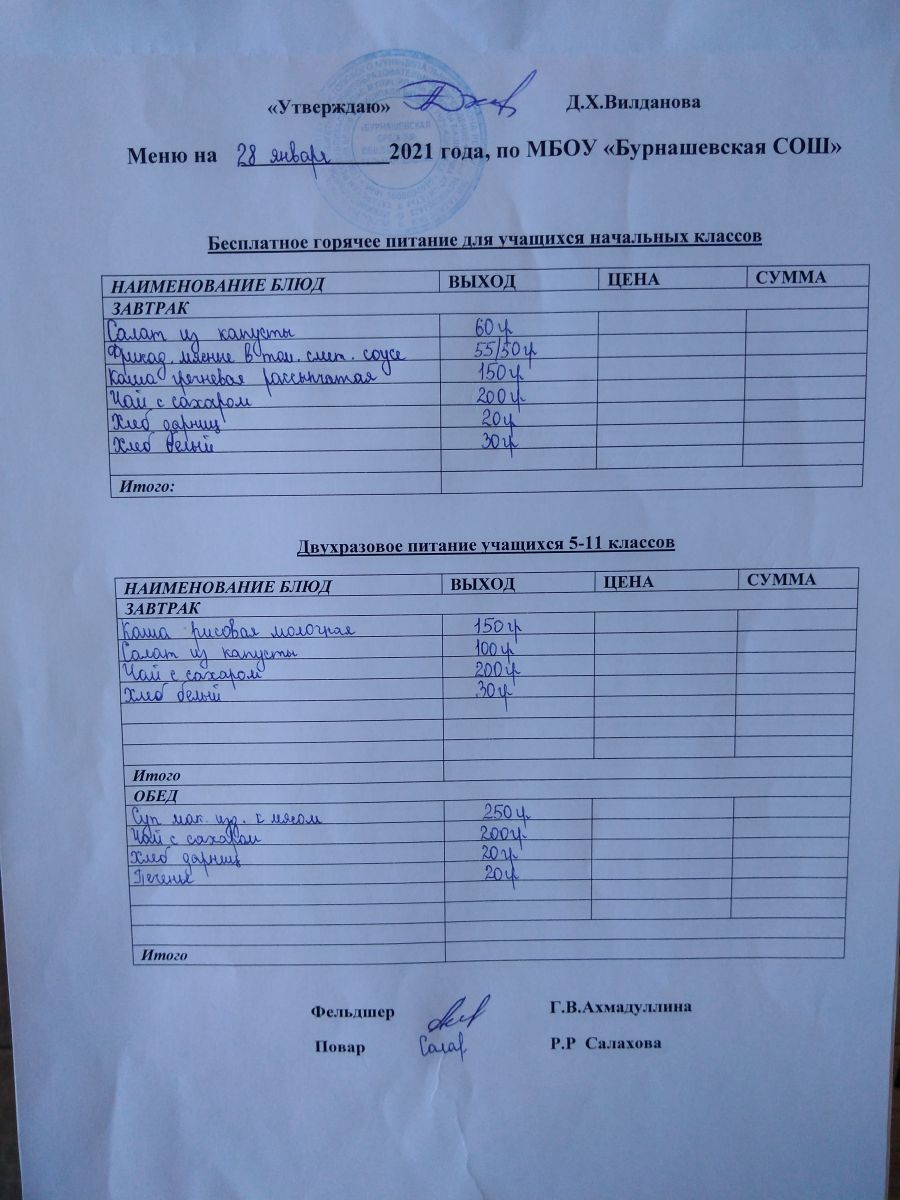 «Утверждаю» Д.Х.Вилданова
Меню на 28 января 2021 года, по МБОУ «Бурнашевская СОШ»
«БУРНАШЕВСКАЯ
Бесплатное горячее питание для учащихся начальных классов
НАИМЕНОВАНИЕ БЛЮД ВЫХОД ЦЕНА СУММА
ЗАВТРАК
Салат из капусты 60гр
Фрикад. мясные в том. смет. соусе 55/50гр
Каша гречневая рассыпчатая 150гр
Чай с сахаром 200гр
Хлеб дарниц 20гр
Хлеб белый 30гр
Итого:
Двухразовое питание учащихся 5-11 классов
НАИМЕНОВАНИЕ БЛЮД ВЫХОД ЦЕНА СУММА
ЗАВТРАК
Каша рисовая молочная 150гр
Салат из капусты 100гр
Чай с сахаром 200гр
Хлеб белый 30гр
Итого
ОБЕД
Суп мак. изд. с мясом 250гр
Чай с сахаром 200гр
Хлеб дарниц 20гр
Печенье 20гр
Итого
Фельдшер Г.В.Ахмадуллина
Повар Салах Р.Р Салахова